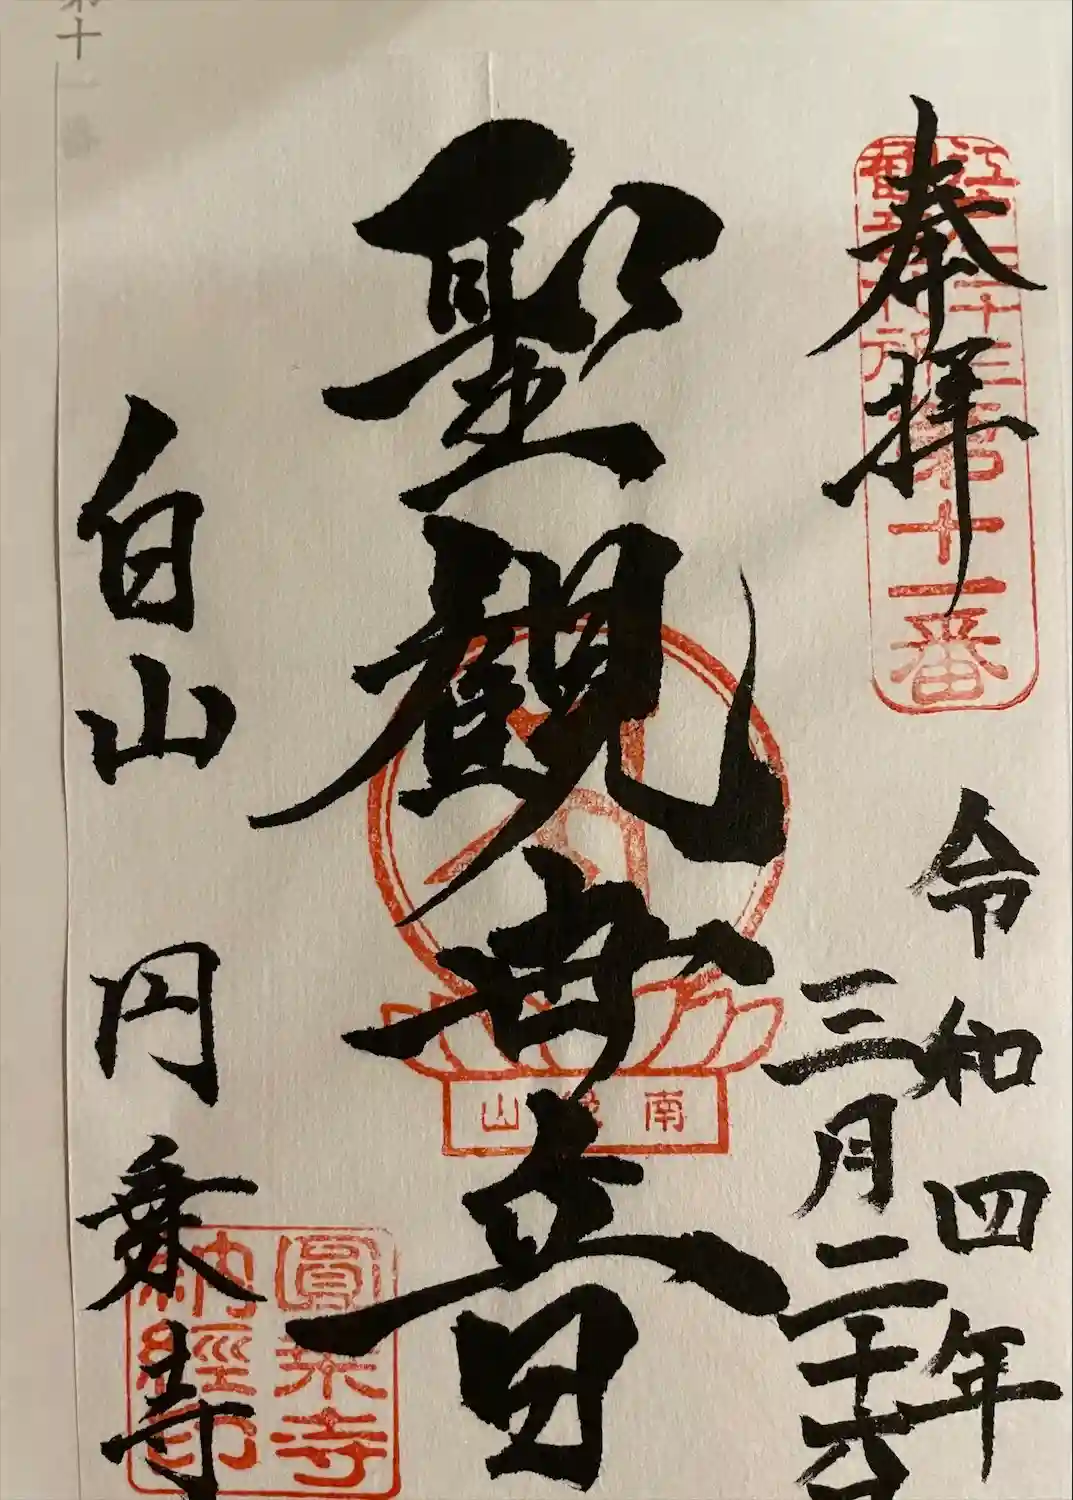 奉拝
江戸三十三
観音札所第十一番
令和四年
三月二十六日
聖観世音
南縁山
白山
円乗寺
圓乗寺
納経印
第十一番